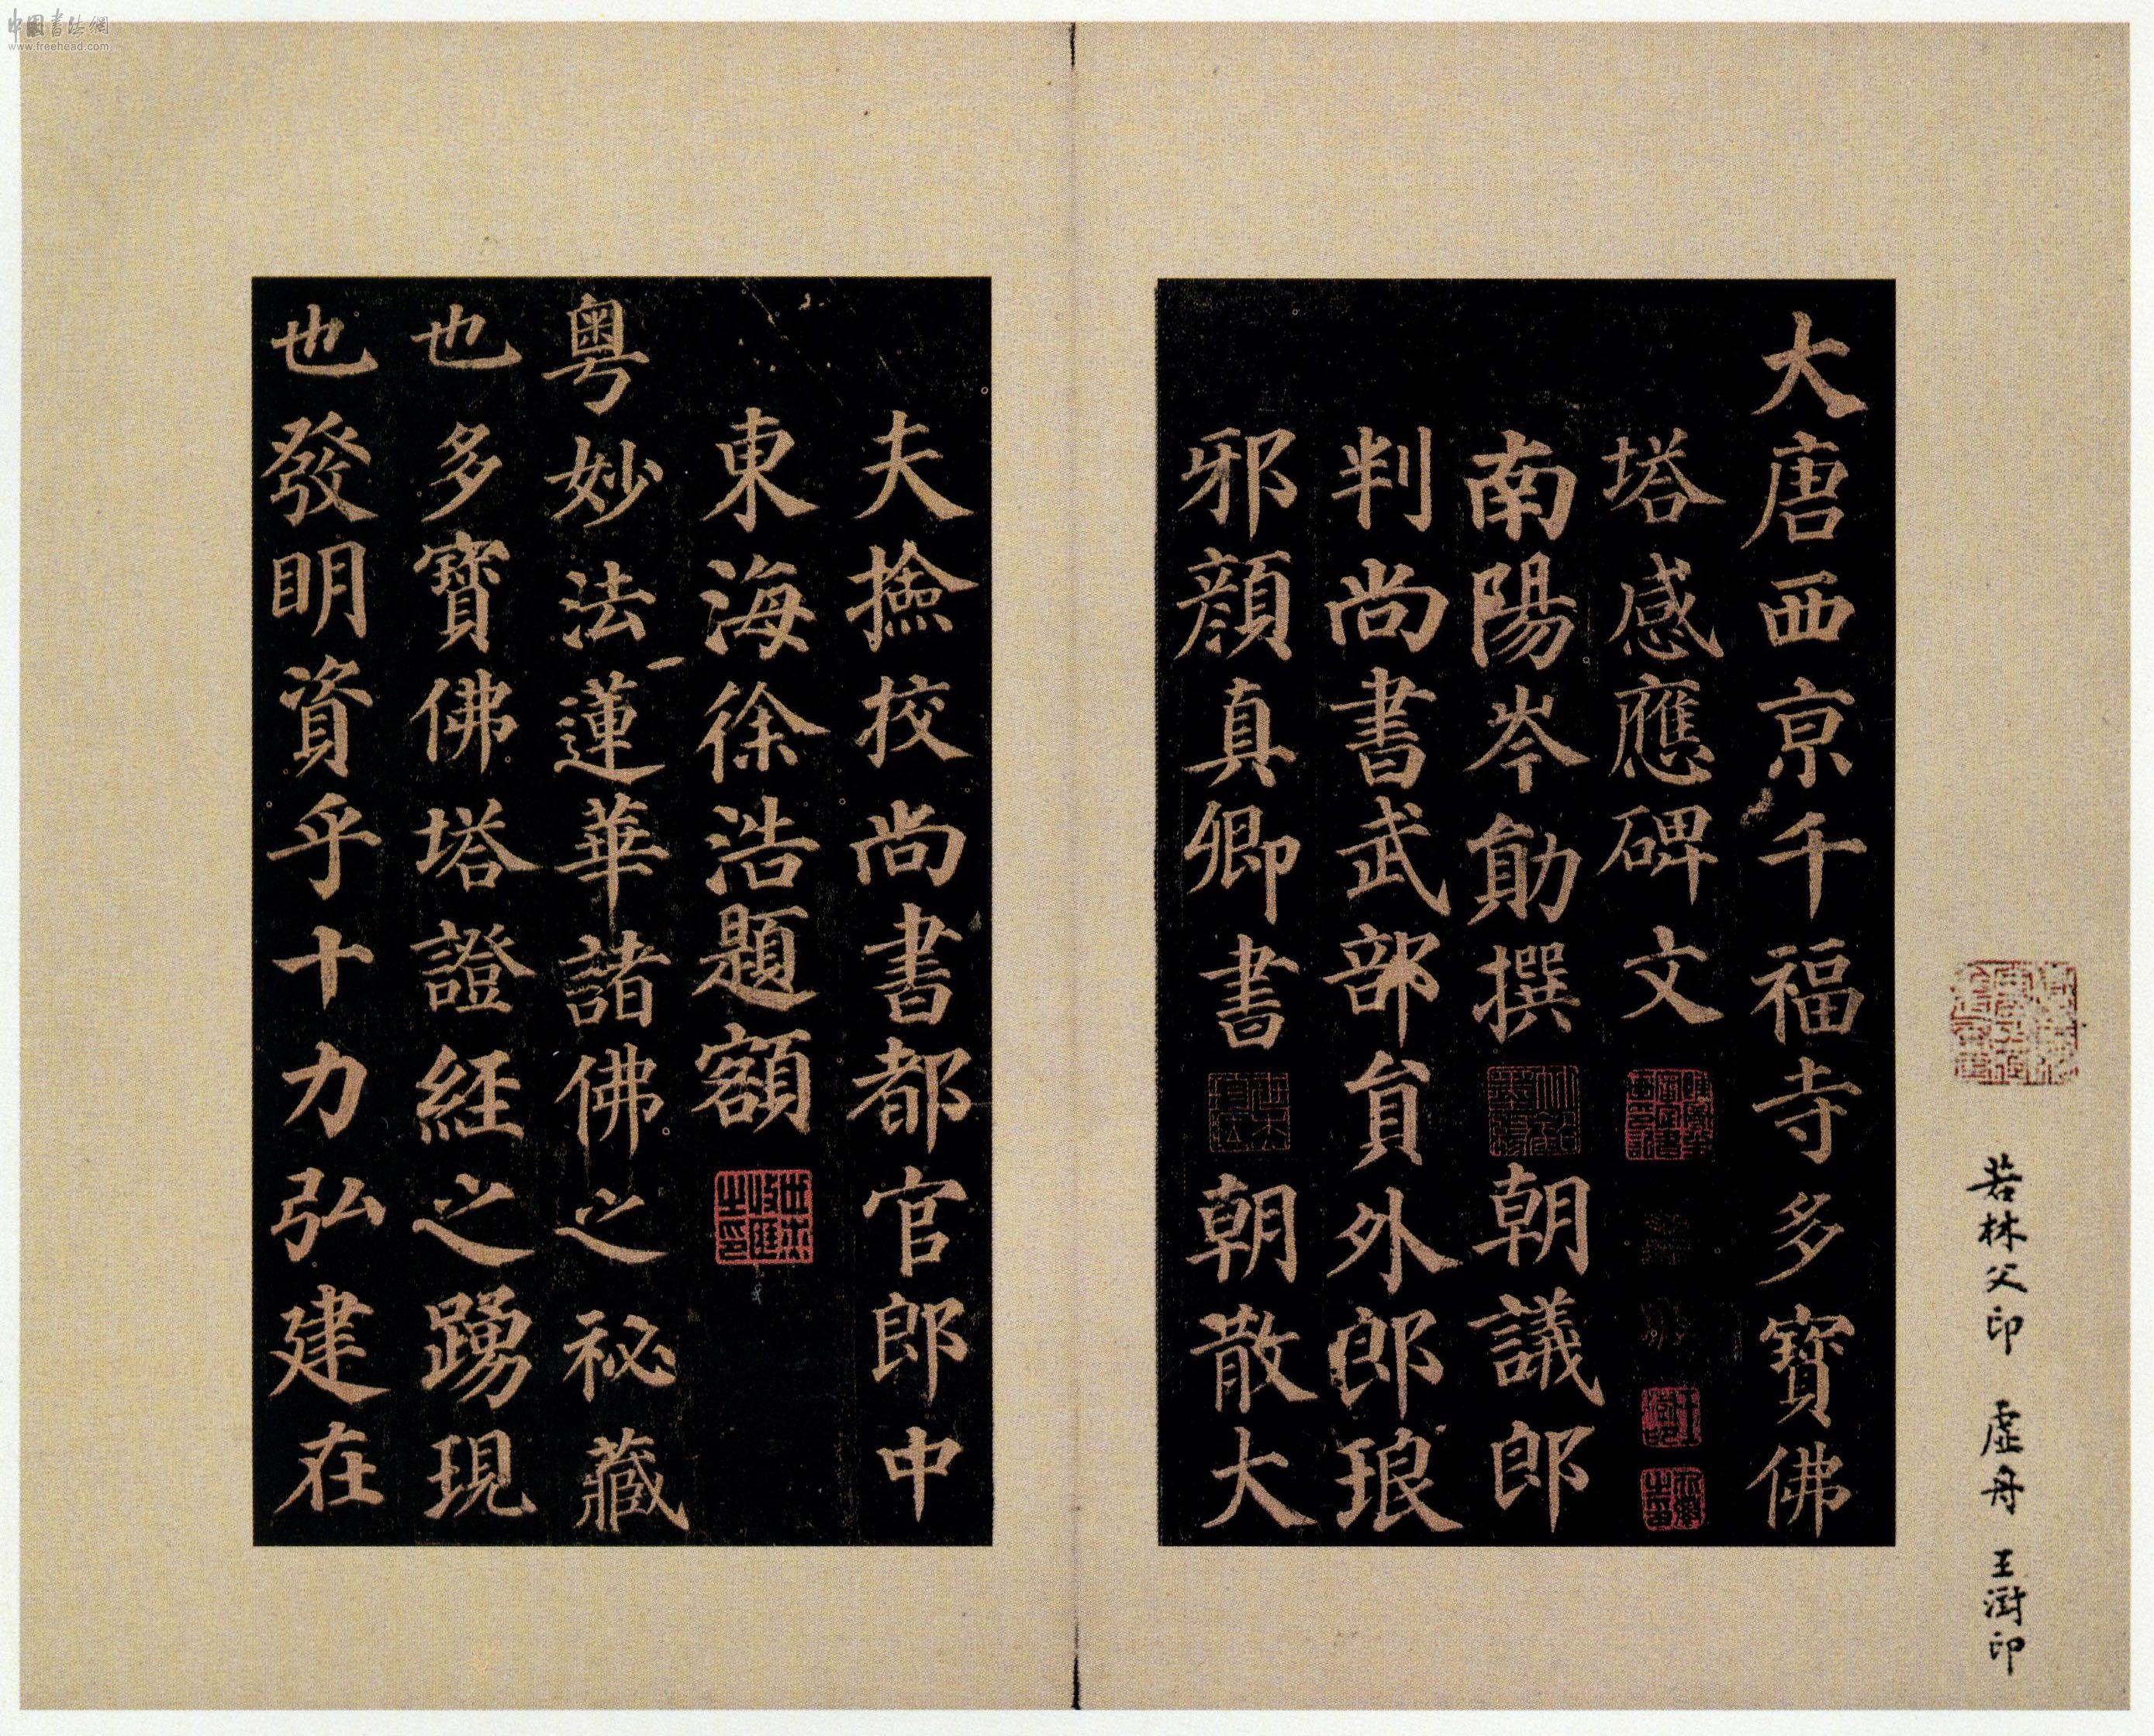 中国书法網
www.freehead.com
大唐西京千福寺多寶佛
塔感應碑文
南陽岑勛撰 朝議郎
判尚書武部員外郎琅
邪顏真卿書 朝散大
夫撿挍尚書都官郎中
東海徐浩題額
粵妙法蓮華諸佛之祕藏
也多寶佛塔證經之踴現
也發明資乎十力弘建在
若林父印 虛舟 王澍印